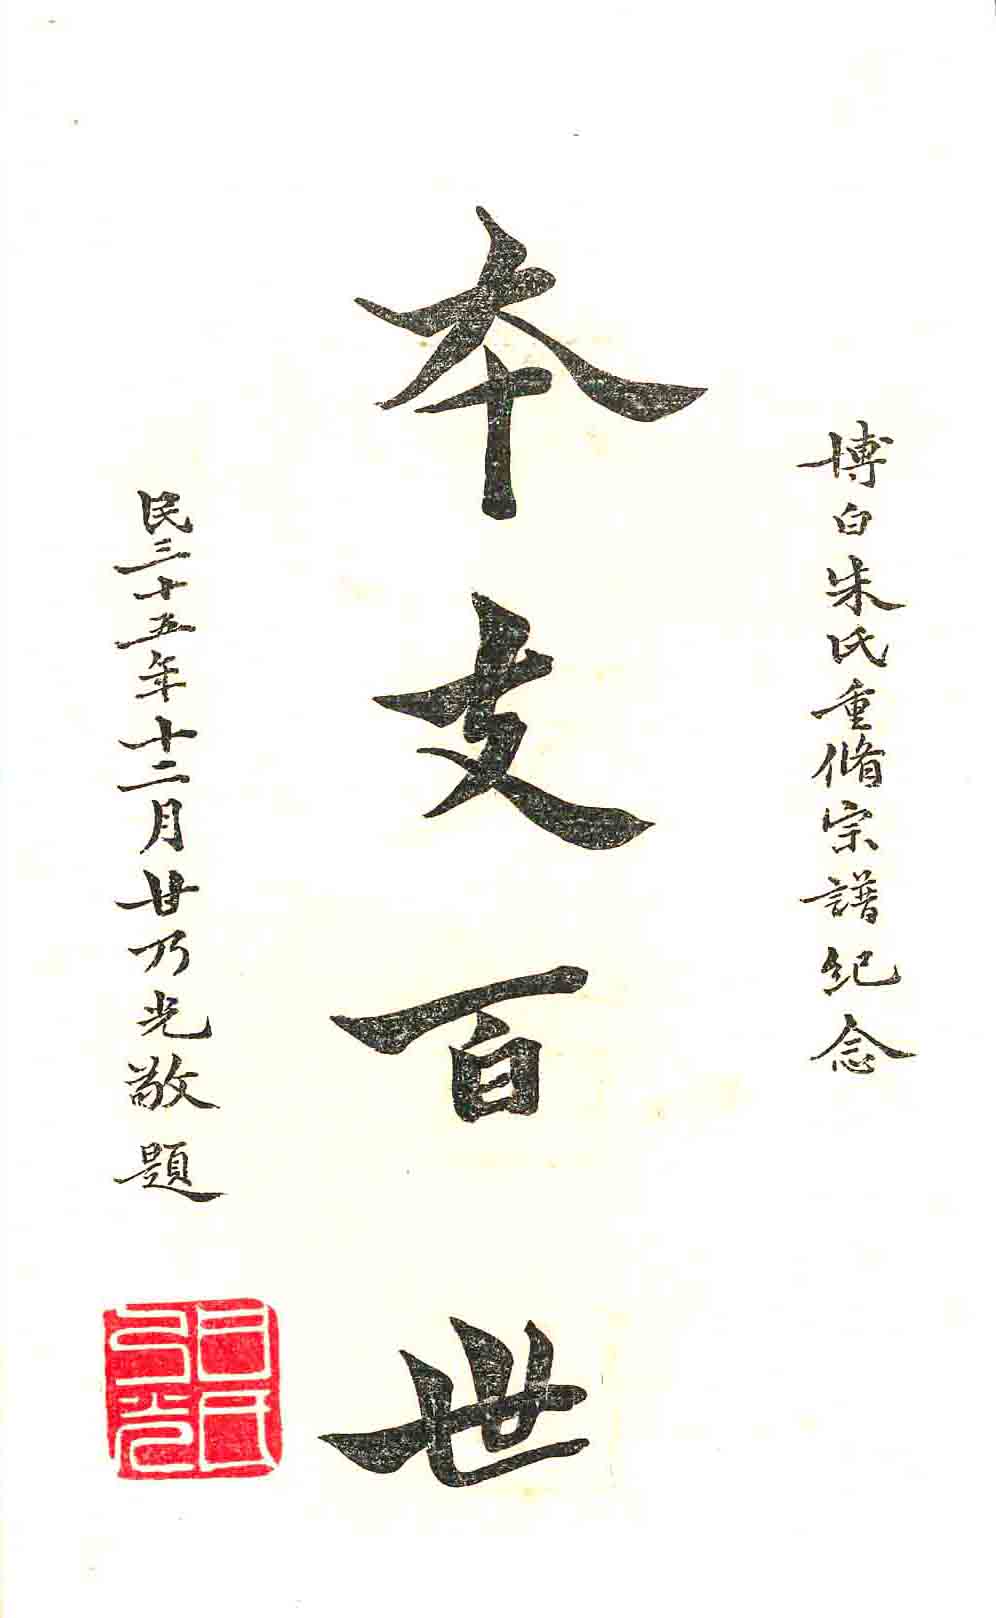 博白朱氏重脩宗譜紀念
本支百世
民三十五年十二月甘乃光敬題
甘氏乃光